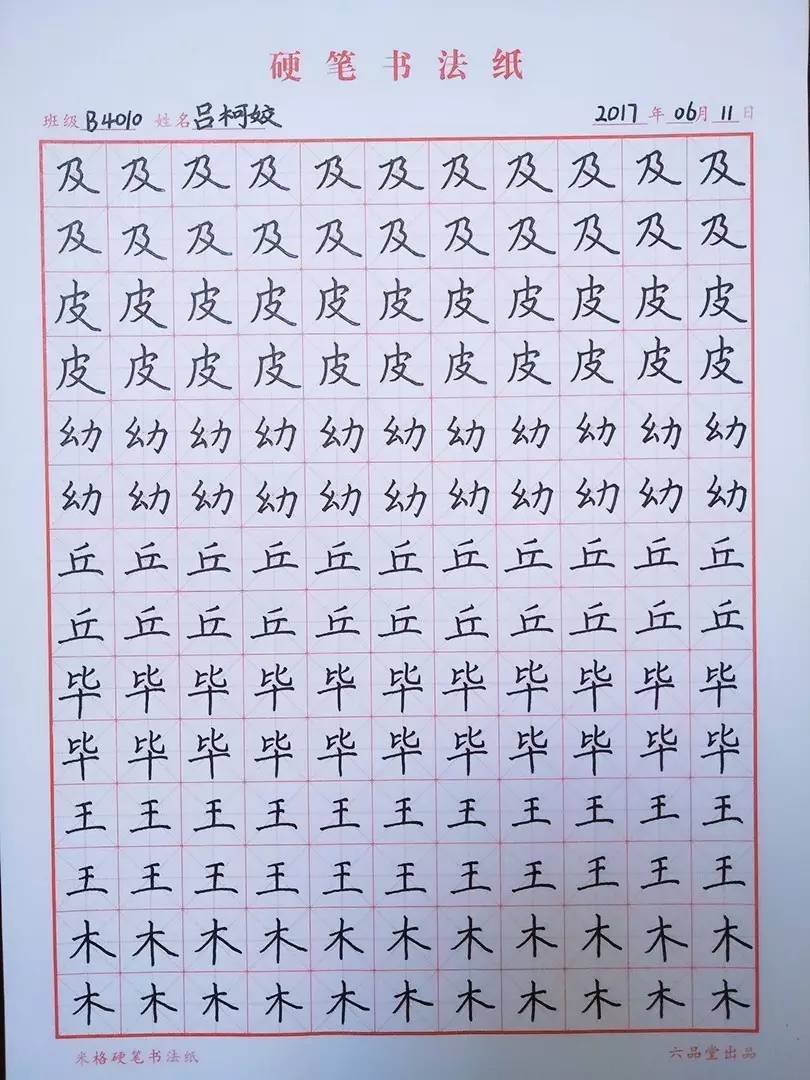 硬笔书法纸
班级 B4010 姓名 吕柯姣 2017 年 06 月 11 日
及及及及及及及及及及及
及及及及及及及及及及及
皮皮皮皮皮皮皮皮皮皮皮
皮皮皮皮皮皮皮皮皮皮皮
幼幼幼幼幼幼幼幼幼幼幼
幼幼幼幼幼幼幼幼幼幼幼
丘丘丘丘丘丘丘丘丘丘丘
丘丘丘丘丘丘丘丘丘丘丘
毕毕毕毕毕毕毕毕毕毕毕
毕毕毕毕毕毕毕毕毕毕毕
王王王王王王王王王王王
王王王王王王王王王王王
木木木木木木木木木木木
木木木木木木木木木木木
米格硬笔书法纸 六品堂出品